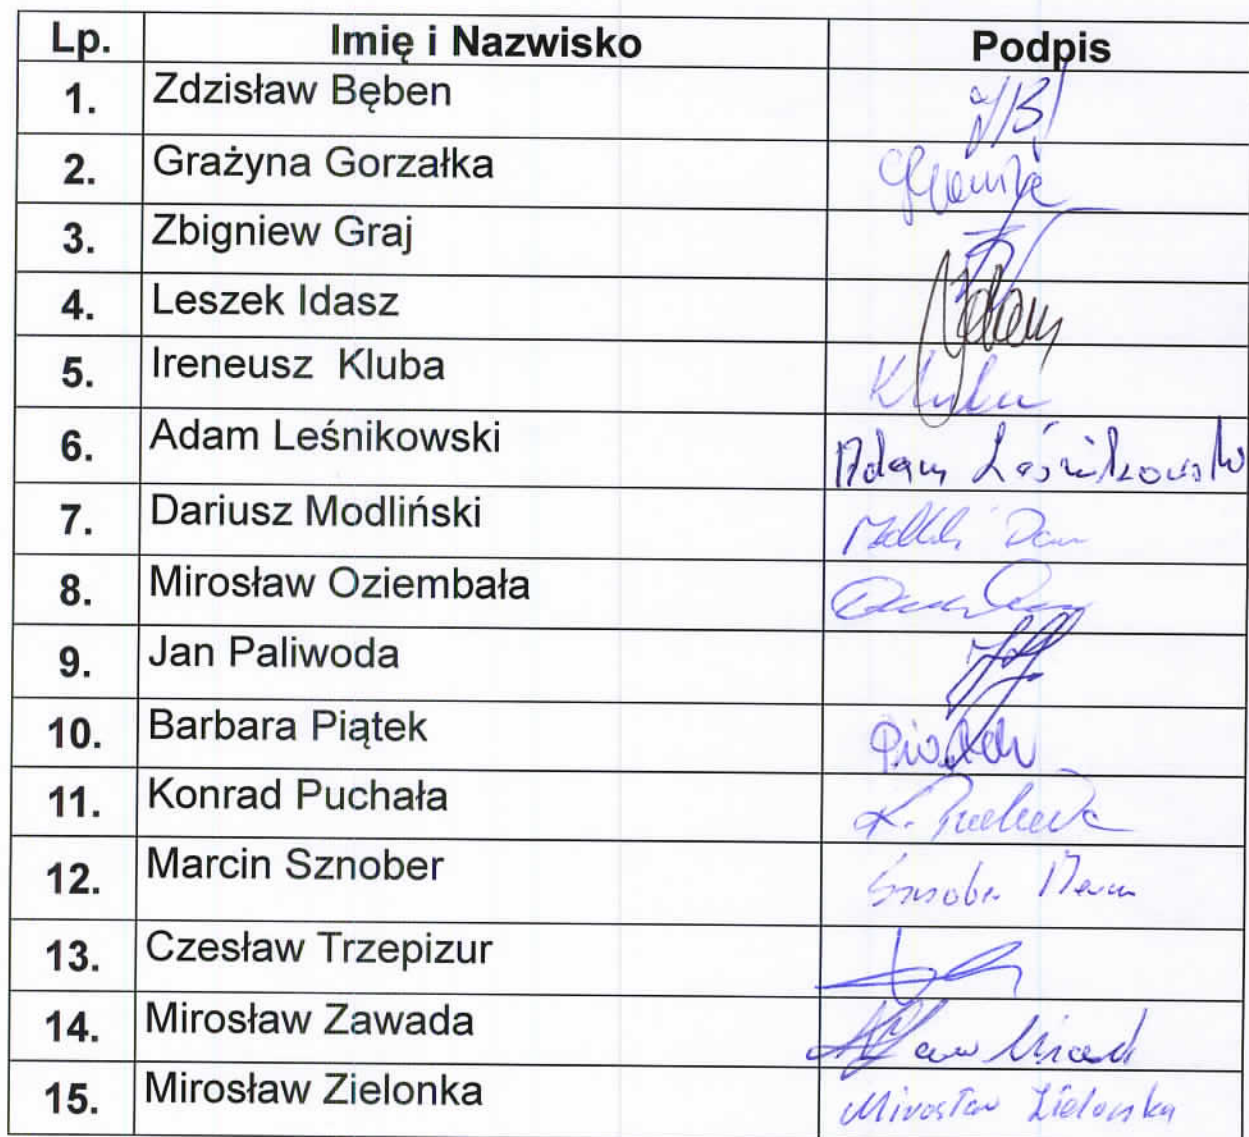 Lp. Imię i Nazwisko Podpis
1. Zdzisław Bęben
2. Grażyna Gorzałka
3. Zbigniew Graj
4. Leszek Idasz
5. Ireneusz Kluba Kluba
6. Adam Leśnikowski Adam Leśnikowski
7. Dariusz Modliński
8. Mirosław Oziembała
9. Jan Paliwoda
10. Barbara Piątek Piątek
11. Konrad Puchała K. Puchała
12. Marcin Sznober Sznober Marcin
13. Czesław Trzepizur
14. Mirosław Zawada
15. Mirosław Zielonka Mirosław Zielonka